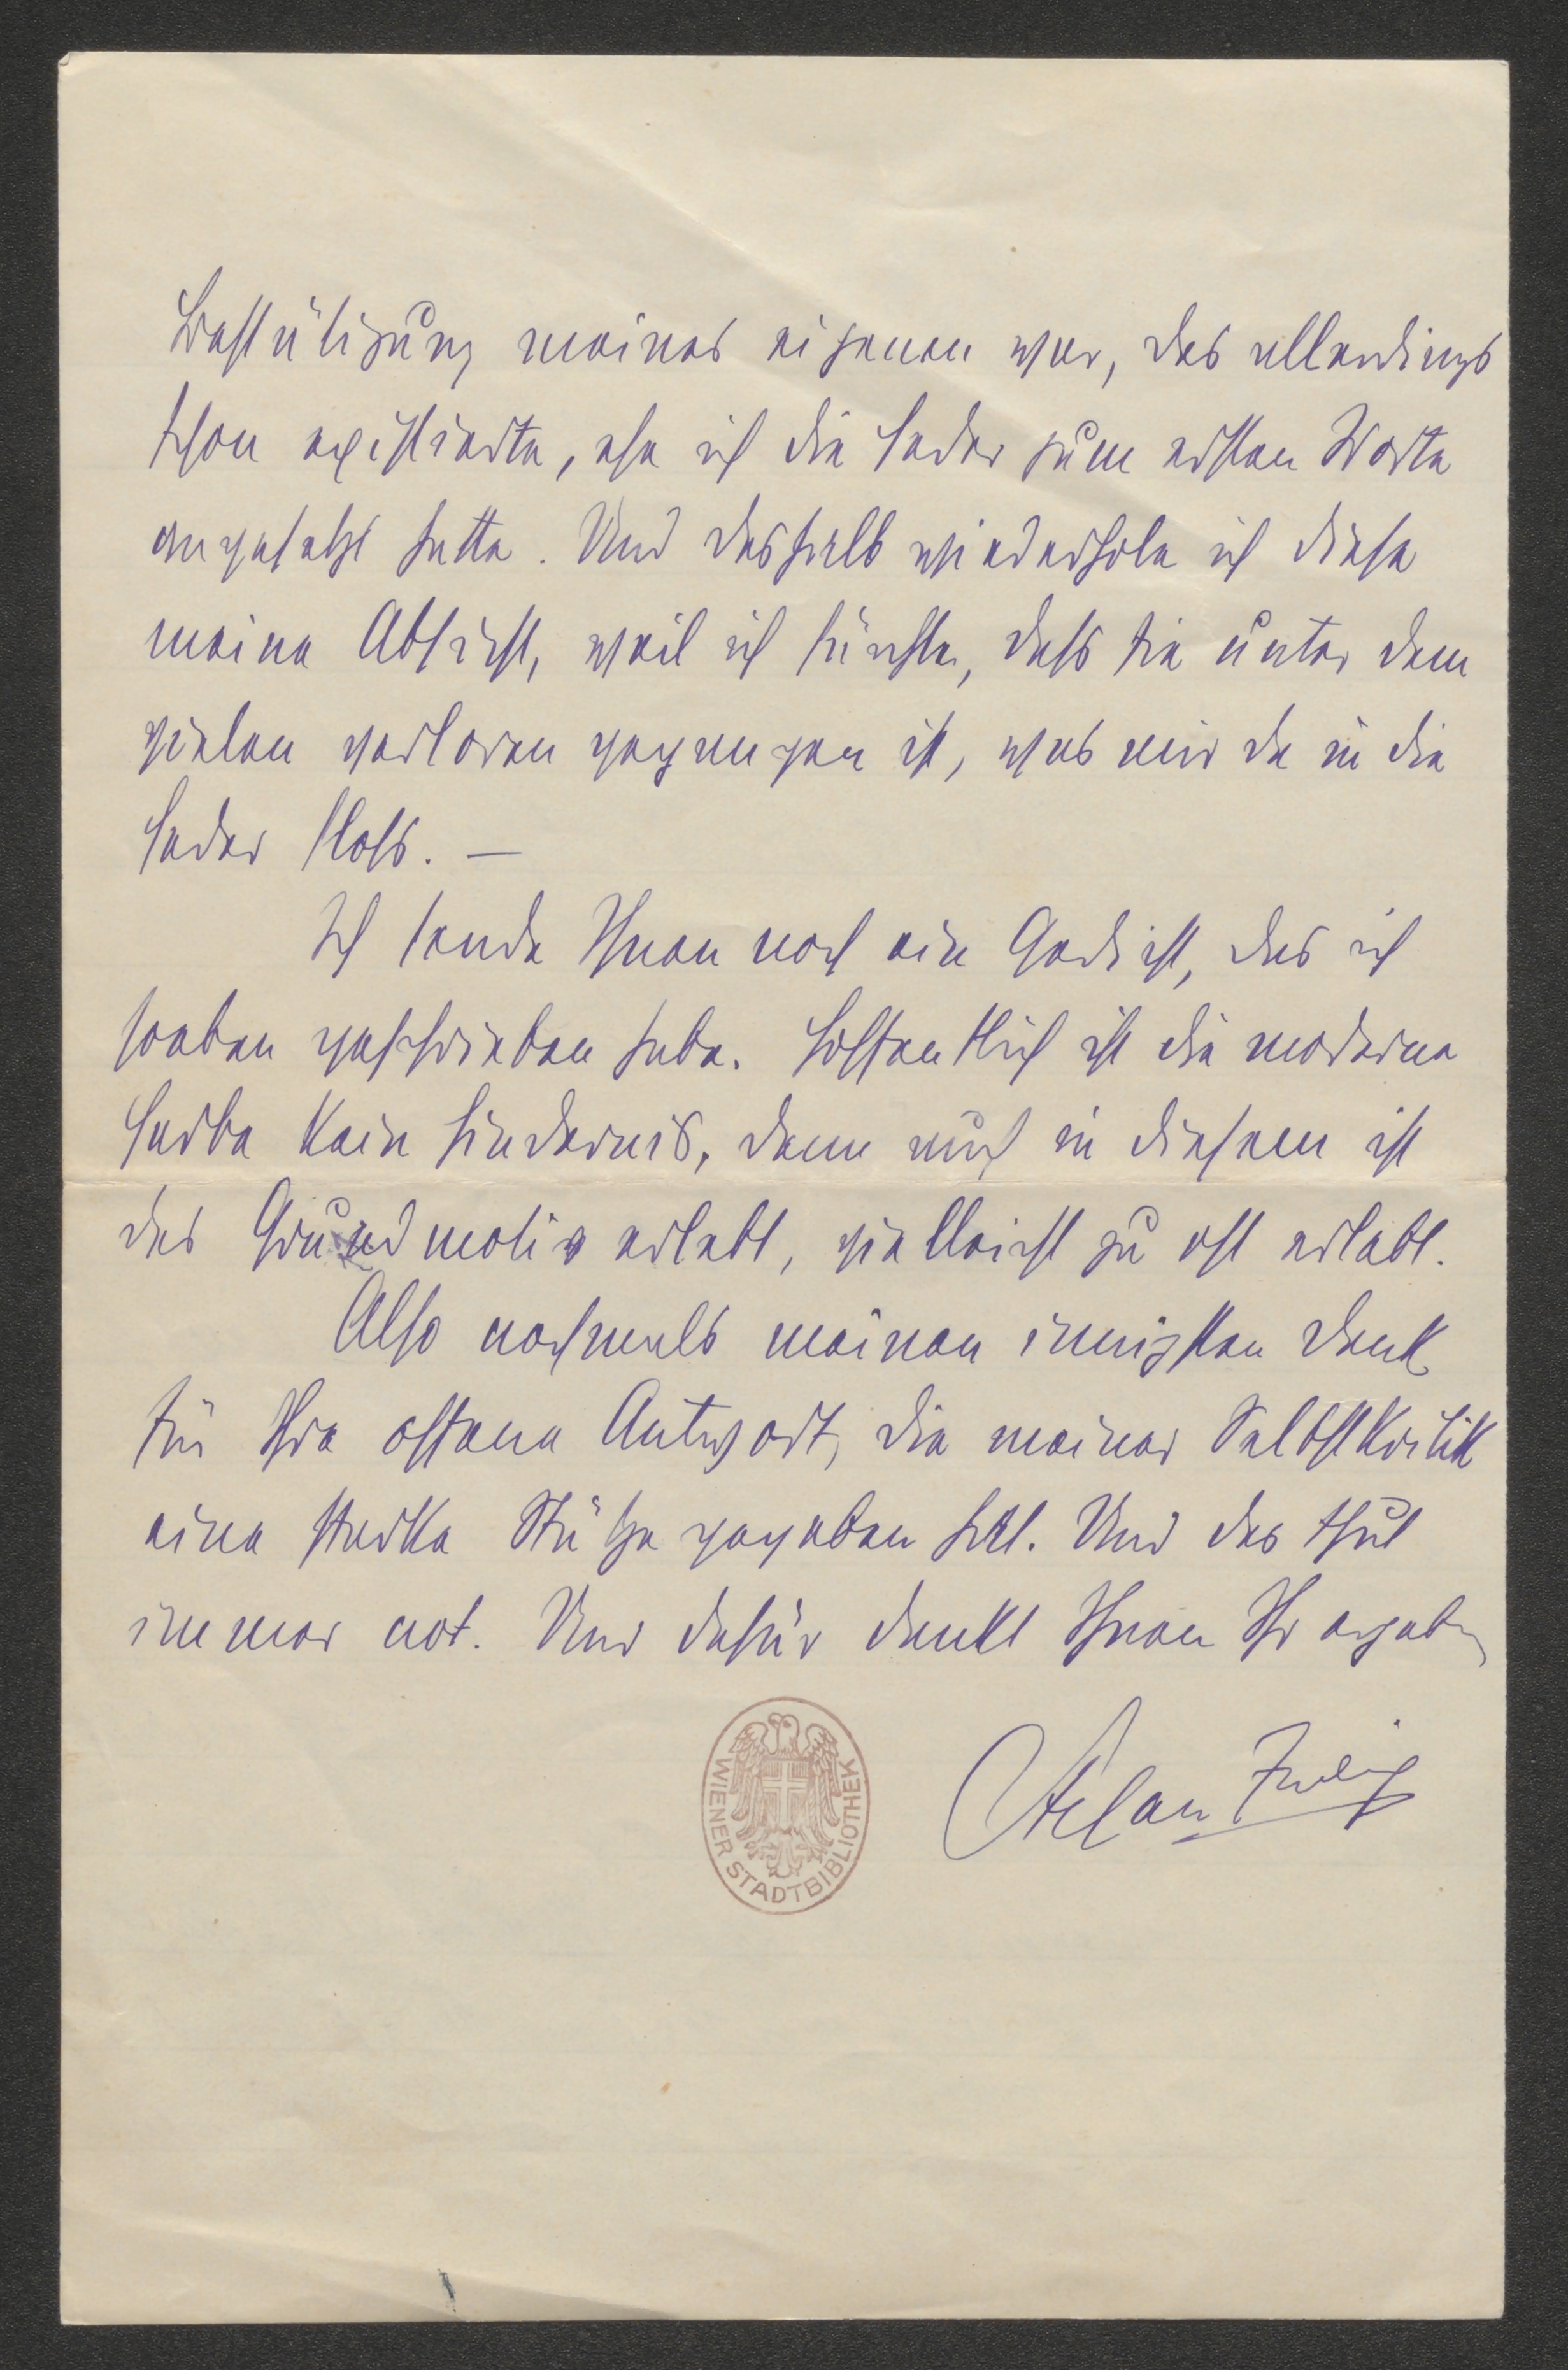 Bestätigung meines eigenen war, das allerdings
schon existierte, ehe ich die Feder zum ersten Worte
angesetzt hatte. Und deshalb wiederhole ich diese
meine Absicht, weil ich fürchte, dass sie unter dem
vielen verloren gegangen ist, was mir da in die
Feder floss. —
Ich sende Ihnen noch ein Gedicht, das ich
soeben geschrieben habe. Hoffentlich ist die moderne
Farbe kein Hindernis, denn auch in diesem ist
das Grundmotiv erlebt, vielleicht zu oft erlebt.
Also nochmals meinen innigsten Dank
für Ihre offene Antwort, die meiner Selbstkritik
eine starke Stütze gegeben hat. Und das thut
immer not. Und dafür dankt Ihnen Ihr ergeben
Stefan Zweig
WIENER STADTBIBLIOTHEK